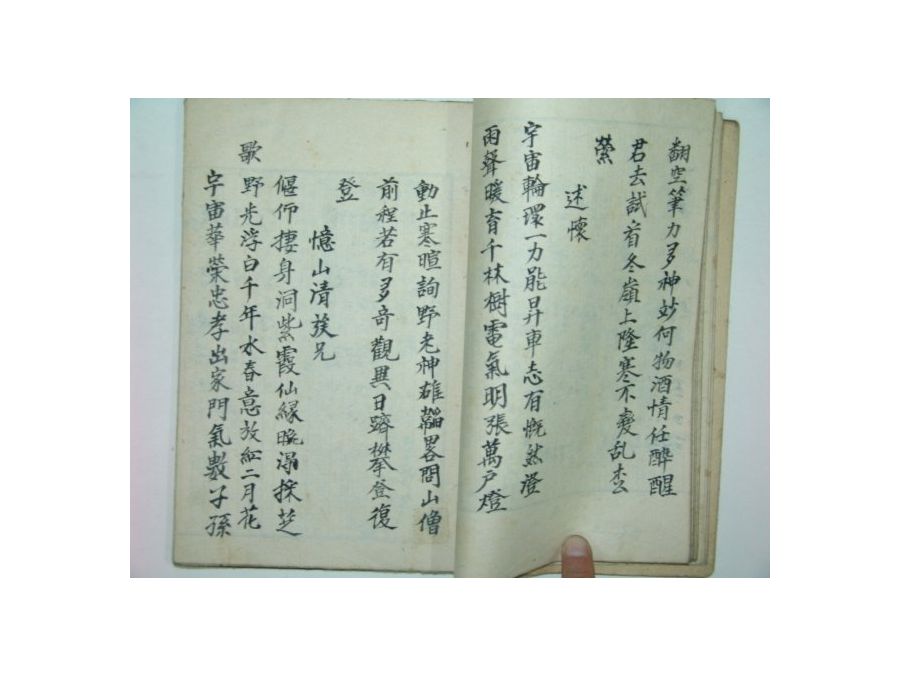 翻空筆力多神妙何物酒情任醉醒
君去試看冬嶺上隆寒不變乱松
縈
述懷
宇宙輪環一力能昇車志有慨然澄
雨聲暖育千林樹電氣明張萬戶燈
動止寒暄詢野老神雄韜畧問山僧
前程若有多奇觀異日躋攀登復
登
憶山清族兄
偃仰捿身洞紫霞仙緣晚溺採芝
歌
野光浮白千年水春意放紅二月花
宇宙華榮忠孝出家門氣數子孫